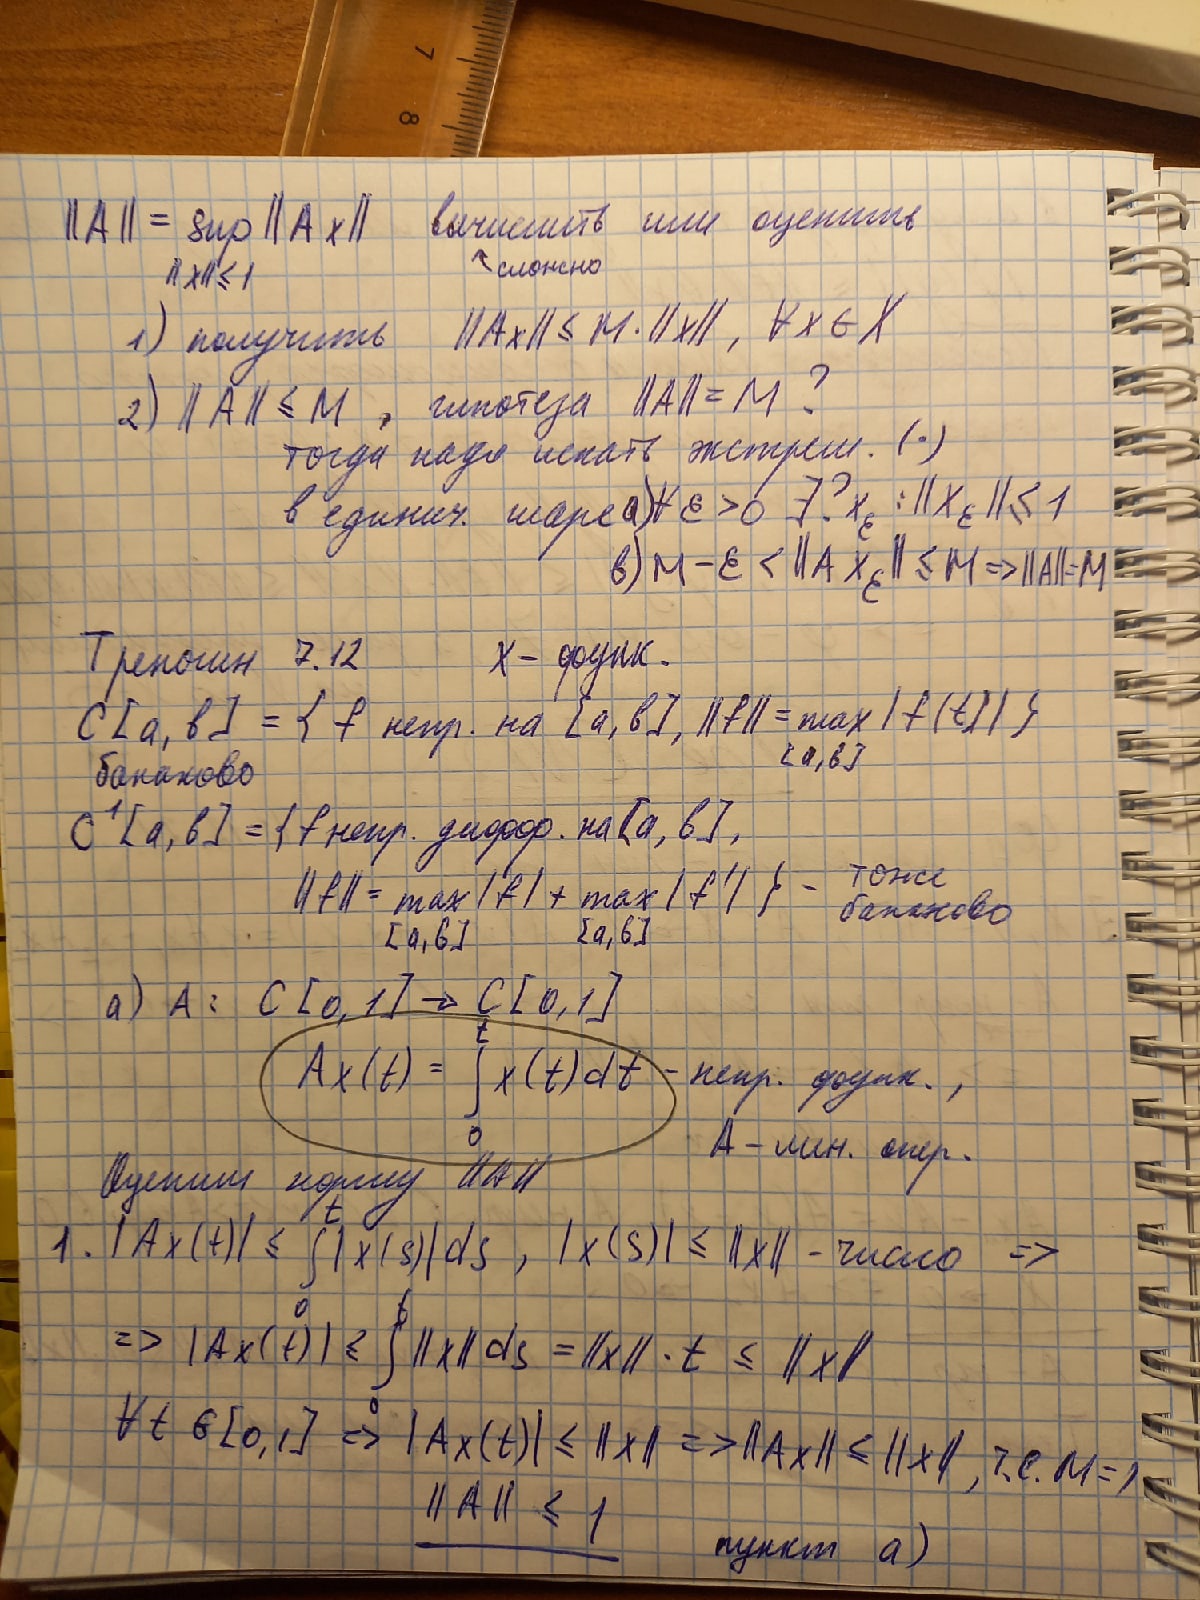 7
8
||A|| = sup ||Ax|| вычислить или оценить
||x||≤1 ↖сложно
1) получить ||Ax|| ≤ M·||x||, ∀x∈X
2) ||A|| ≤ M, гипотеза ||A|| = M ?
тогда надо искать экстрем. (·)
в единич. шаре а) ∀ε>0 ∃? xε : ||xε|| ≤ 1
в) M-ε < ||Axε|| ≤ M => ||A||=M
Треногин 7.12 x – функ.
C[a,b] = { f непр. на [a,b], ||f|| = max |f(t)| }
[a,b]
банахово
C¹[a,b] = { f непр. дифф. на [a,b],
||f|| = max |f| + max |f'| } – тоже
[a,b] [a,b] банахово
а) A: C[0,1] → C[0,1]
Ax(t) = ∫₀ᵗ x(t)dt – непр. функ.,
A – лин. опер.
Оценим норму ||A||
1. |Ax(t)| ≤ ∫₀ᵗ |x(s)|ds, |x(s)| ≤ ||x|| – число =>
=> |Ax(t)| ≤ ∫₀ᵗ ||x||ds = ||x||·t ≤ ||x||
∀t∈[0,1] => |Ax(t)| ≤ ||x|| => ||Ax|| ≤ ||x||, т.е. M=1
||A|| ≤ 1 пункт а)